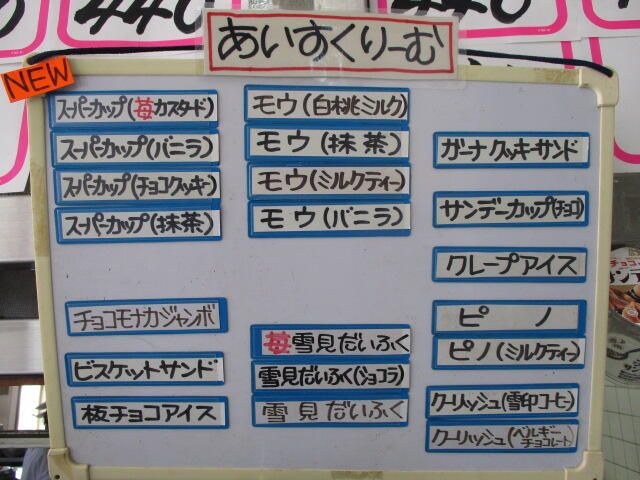 あいすくりーむ
NEW
スーパーカップ(苺カスタード)
スーパーカップ(バニラ)
スーパーカップ(チョコクッキー)
スーパーカップ(抹茶)
チョコモナカジャンボ
ビスケットサンド
板チョコアイス
モウ(白桃ミルク)
モウ(抹茶)
モウ(ミルクティー)
モウ(バニラ)
苺雪見だいふく
雪見だいふく(ショコラ)
雪見だいふく
ガーナクッキーサンド
サンデーカップ(チョコ)
クレープアイス
ピノ
ピノ(ミルクティー)
クーリッシュ(雪印コーヒー)
クーリッシュ(ベルギーチョコレート)